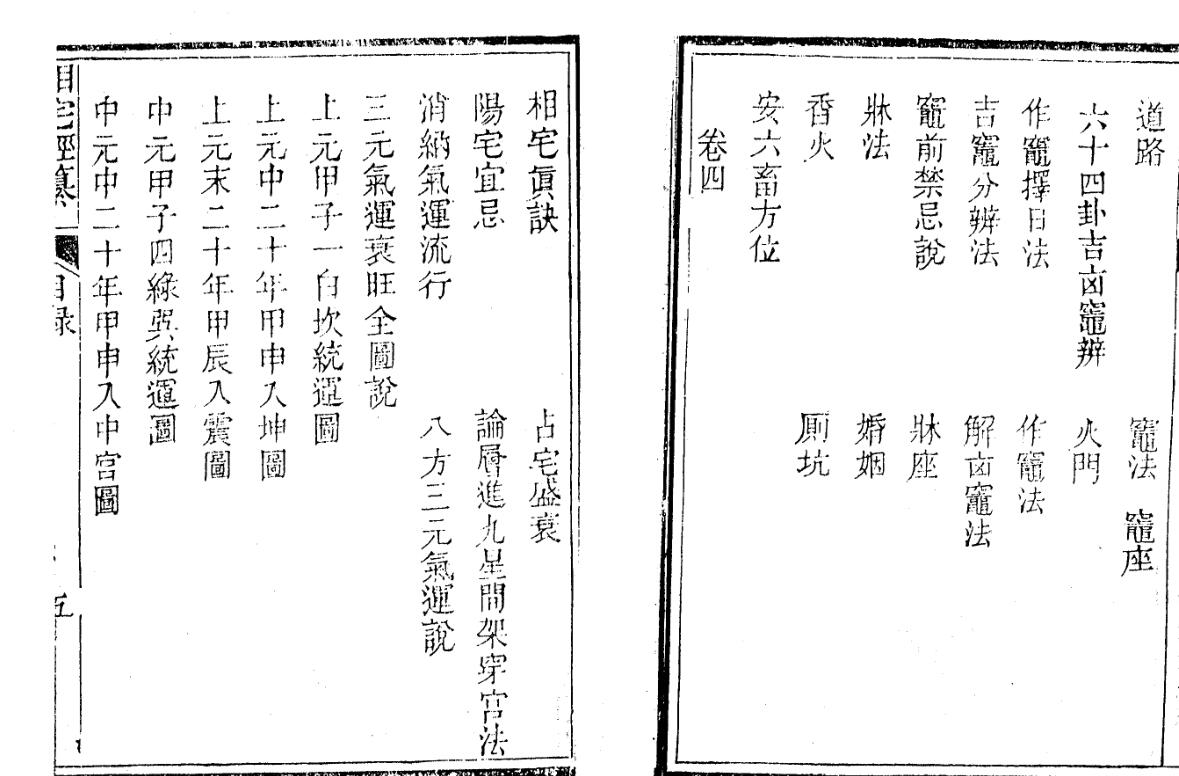 道路　竈法　竈座
六十四卦吉凶竈辨　火門
作竈擇日法　作竈法
吉竈分辨法　解凶竈法
竈前禁忌說　牀座
牀法　婚姻
香火　厠坑
安六畜方位
卷四
相宅眞訣　占宅盛衰
陽宅宜忌　論層進九星間架穿宮法
消納氣運流行　八方三元氣運說
三元氣運衰旺全圖說
上元甲子一白坎統運圖
上元中二十年甲申入坤圖
上元末二十年甲辰入震圖
中元甲子四綠巽統運圖
中元中二十年甲申入中宮圖
相宅經纂　目錄　五